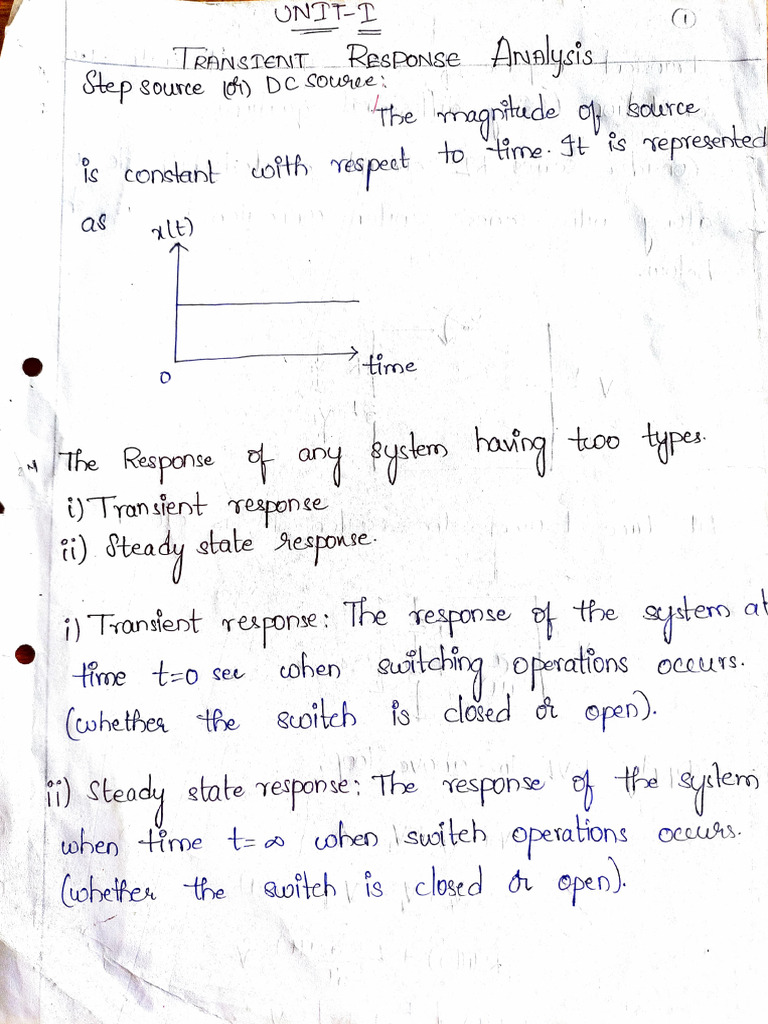 UNIT-I
(1)
TRANSIENT RESPONSE ANALYSIS
Step source (or) DC source:
The magnitude of source
is constant with respect to time. It is represented
as
x(t)
time
0
2M The Response of any system having two types.
i) Transient response
ii) Steady state response.
i) Transient response: The response of the system at
time t=0 sec when switching operations occurs.
(whether the switch is closed or open).
ii) Steady state response: The response of the system
when time t=∞ when switch operations occurs.
(whether the switch is closed or open).